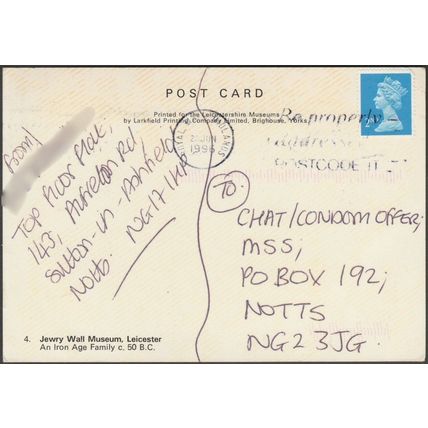 POST CARD
Printed for the Leicestershire Museums
by Larkfield Printing Company Limited, Brighouse, Yorks.
MIDLANDS
2 JUN
1996
Be properly
addressed
POSTCODE IT
From/
Top Floor Flat,
143,
Rd,
Sutton-in-Ashfield
Notts. NG17
To:
CHAT/CONDOM OFFER,
MSS,
PO BOX 192,
NOTTS
NG2 3JG.
4. Jewry Wall Museum, Leicester
An Iron Age Family c. 50 B.C.